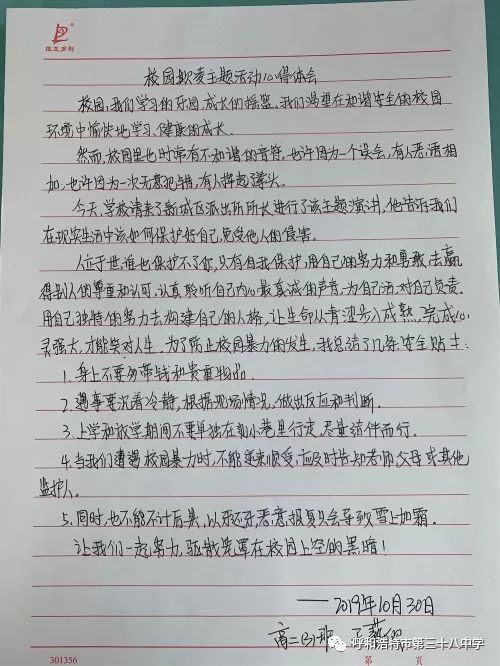 校园欺凌主题运动心得体会
校园,我们学习的乐园,成长的摇篮。我们渴望在和谐安全的校园
环境中愉快地学习,健康的成长.
然而,校园里也时常有不和谐的音符,也许因为一个误会,有人恶语相
加,也许因为一次无意犯错,有人挥起了拳头。
今天,学校请来了新城区派出所所长进行了该主题演讲,他告诉我们
在现实生活中该如何保护好自己,免受他人的侵害。
人立于世,谁也保护不了你,只有自我保护,用自己的努力和勇敢,去赢
得别人的尊重和认可,认真聆听自己内心最真诚的声音,为自己活,对自己负责.
用自己独特的努力去构建自己的人格,让生命从青涩步入成熟,完成心
灵强大,才能笑对人生.为了防止校园暴力的发生,我总结了几条安全贴士:
1.身上不要多带钱和贵重物品.
2.遇事要沉着冷静,根据现场情况,做出反应和判断.
3.上学和放学期间不要单独在小巷里行走,尽量结伴而行.
4.当我们遭遇校园暴力时,不能逆来顺受,应及时告知老师,父母或其他
监护人.
5.同时,也不能不计后果,以牙还牙,恶意报复只会导致雪上加霜.
让我们一起努力,驱散笼罩在校园上空的黑暗!
——2019年10月30日
高二(3)班
呼和浩特市第三十八中学
301356
第 页